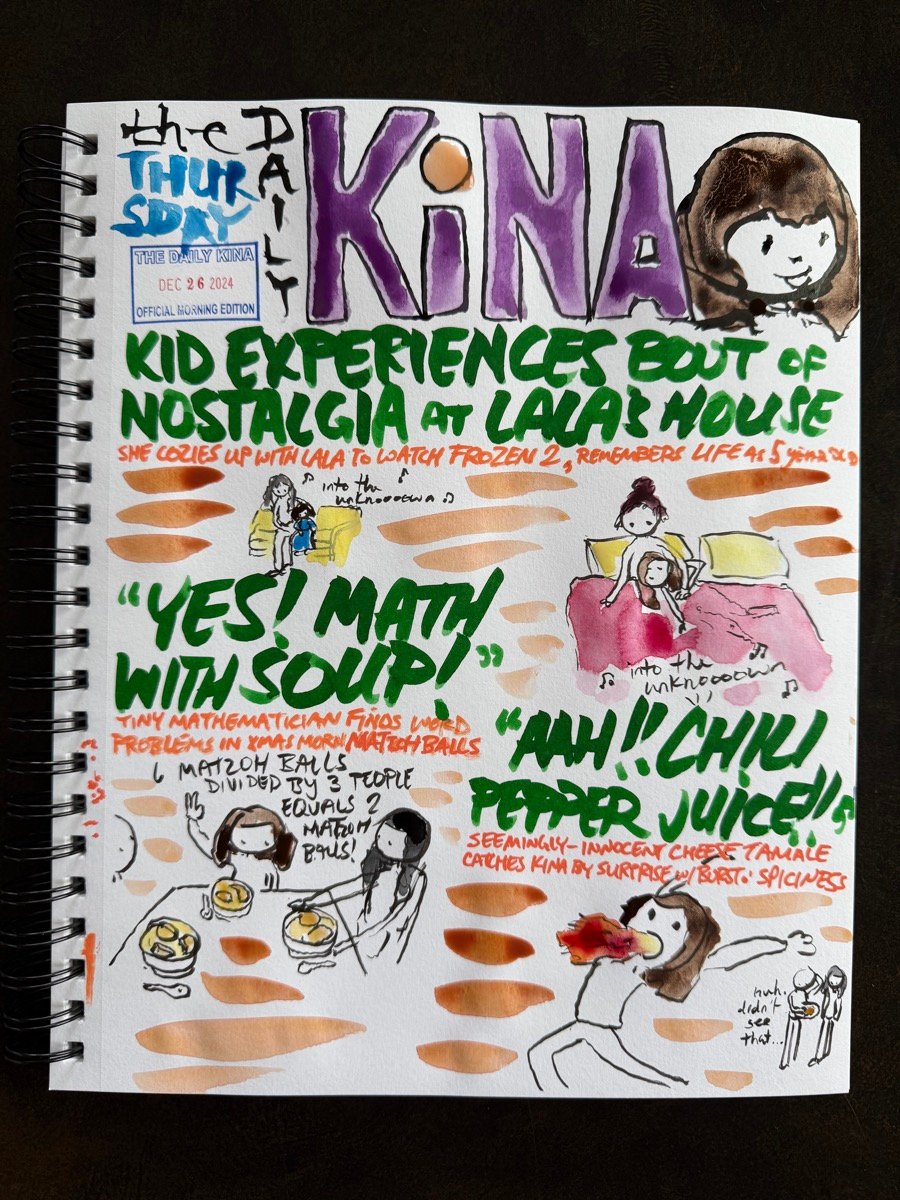 the DAILY KiNA
THUR
SDAY
THE DAILY KINA
DEC 26 2024
OFFICIAL MORNING EDITION
KID EXPERIENCES BOUT OF
NOSTALGIA AT LALA'S HOUSE
SHE COZIES UP WITH LALA TO WATCH FROZEN 2, REMEMBERS LIFE AS 5
into the
unknoooown
into the
unknoooown
"YES! MATH
WITH SOUP!"
TINY MATHEMATICIAN FINDS WORD
PROBLEMS IN XMAS MORN MATZOH BALLS
6 MATZOH BALLS
DIVIDED BY 3 PEOPLE
EQUALS 2
MATZOH
BALLS!
"AAH!! CHILI
PEPPER JUICE!!"
SEEMINGLY-INNOCENT CHEESE TAMALE
CATCHES KINA BY SURPRISE W/ BURST OF SPICINESS
huh.
didn't
see
that...